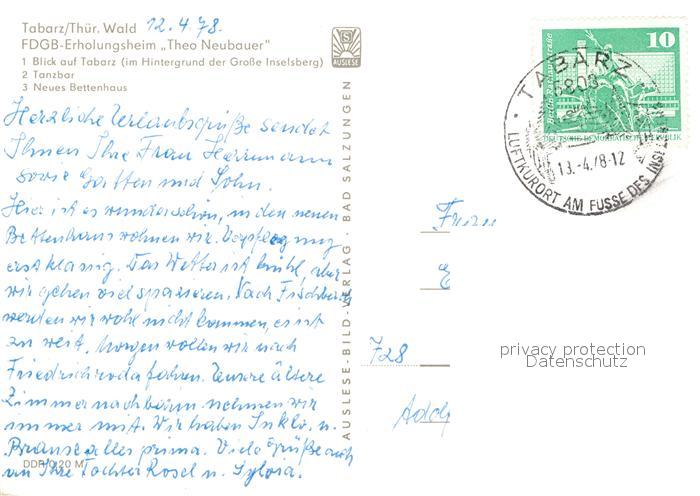 Tabarz/Thür. Wald 12.4.78.
FDGB-Erholungsheim „Theo Neubauer"
1 Blick auf Tabarz (im Hintergrund der Große Inselsberg)
2 Tanzbar
3 Neues Bettenhaus
S
AUSLESE
Herzliche Urlaubsgrüße sendet
Ihnen Ihre Frau Herrmann
sowie Gatten und Sohn.
Hier ist es wunderschön, in den neuen
Bettenhaus wohnen wir. Verpflegung
erstklassig. Das Wetter ist kühl, aber
wir gehen viel spazieren. Nach Fischbach
werden wir wohl nicht kommen, es ist
zu weit. Morgen wollen wir nach
Friedrichroda fahren. Unsere ältere
Zimmernachbarin nehmen wir
immer mit. Wir haben Inkl. u.
Brause alles prima. Viele Grüße auch
an Ihre Tochter Rosel u. Sylvia.
DDR 0,20 M
AUSLESE-BILD-VERLAG · BAD SALZUNGEN
10
Berlin, Rathausstraße
DEUTSCHE DEMOKRATISCHE REPUBLIK
TABARZ
5808
13.-4.78-12
LUFTKURORT AM FUSSE DES
Frau
E
728
privacy protection
Datenschutz